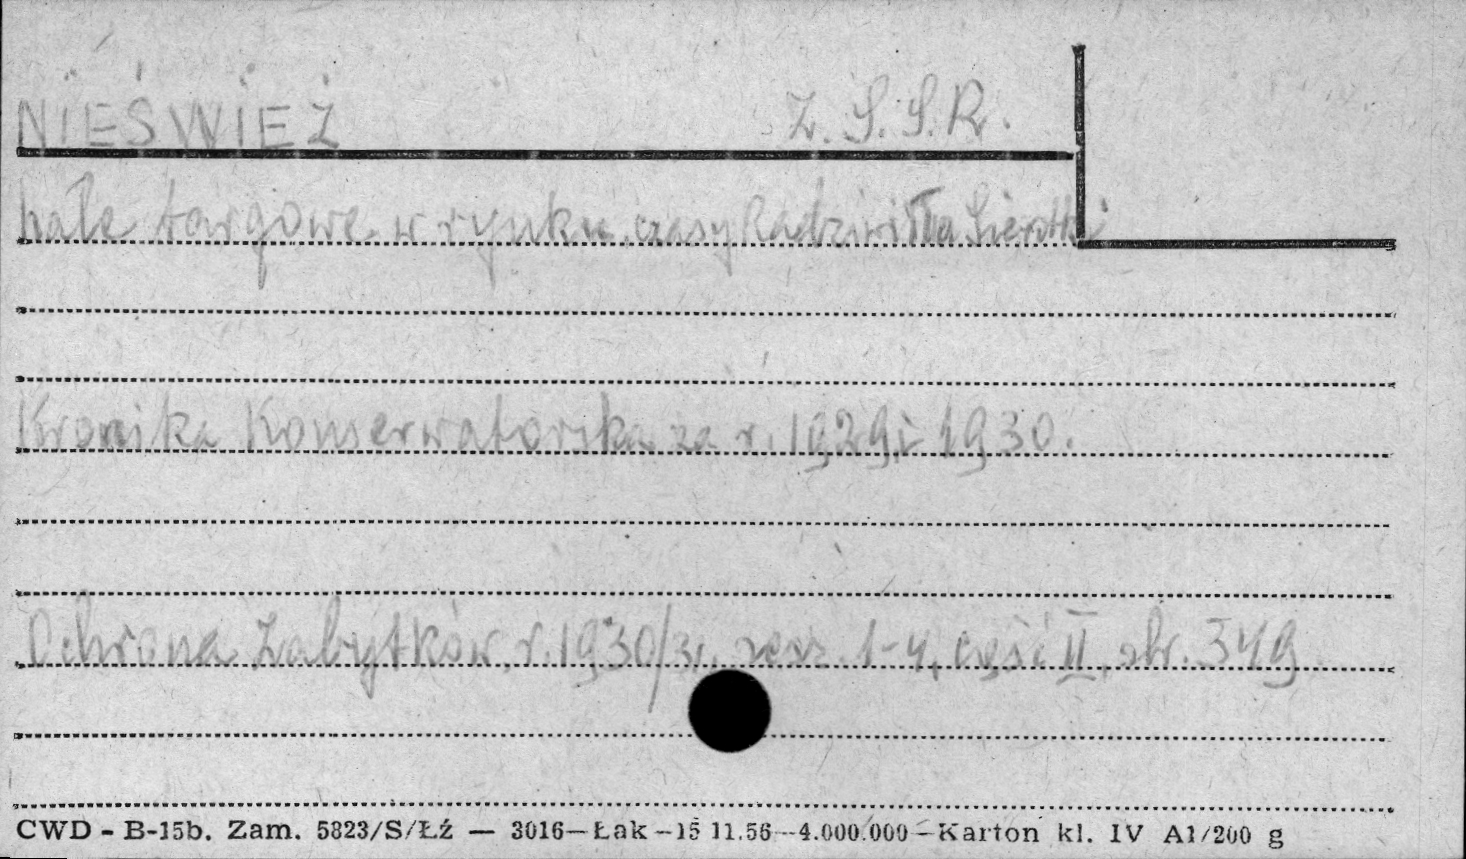 NIEŚWIEŻ Z.S.S.R.
hale targowe w rynku, czasy Radziwiłła Sierotki
Kronika Konserwatorska za r. 1929 i 1930.
Ochrona Zabytków, r. 1930/31, zesz. 1-4, część II, str. 349
CWD - B-15b. Zam. 5823/S/Łź — 3016 — Łak — 15 11.56 — 4.000.000 — Karton kl. IV A1/200 g